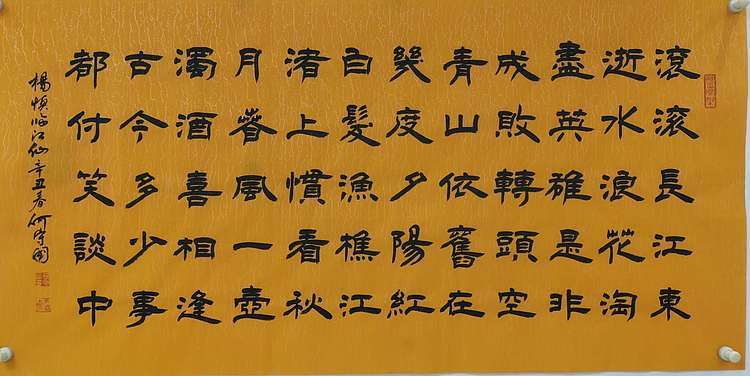 滾滾長江東
逝水浪花淘
盡英雄是非
成敗轉頭空
青山依舊在
幾度夕陽紅
白髮漁樵江
渚上慣看秋
月春風一壺
濁酒喜相逢
古今多少事
都付笑談中
楊慎臨江仙辛丑春何